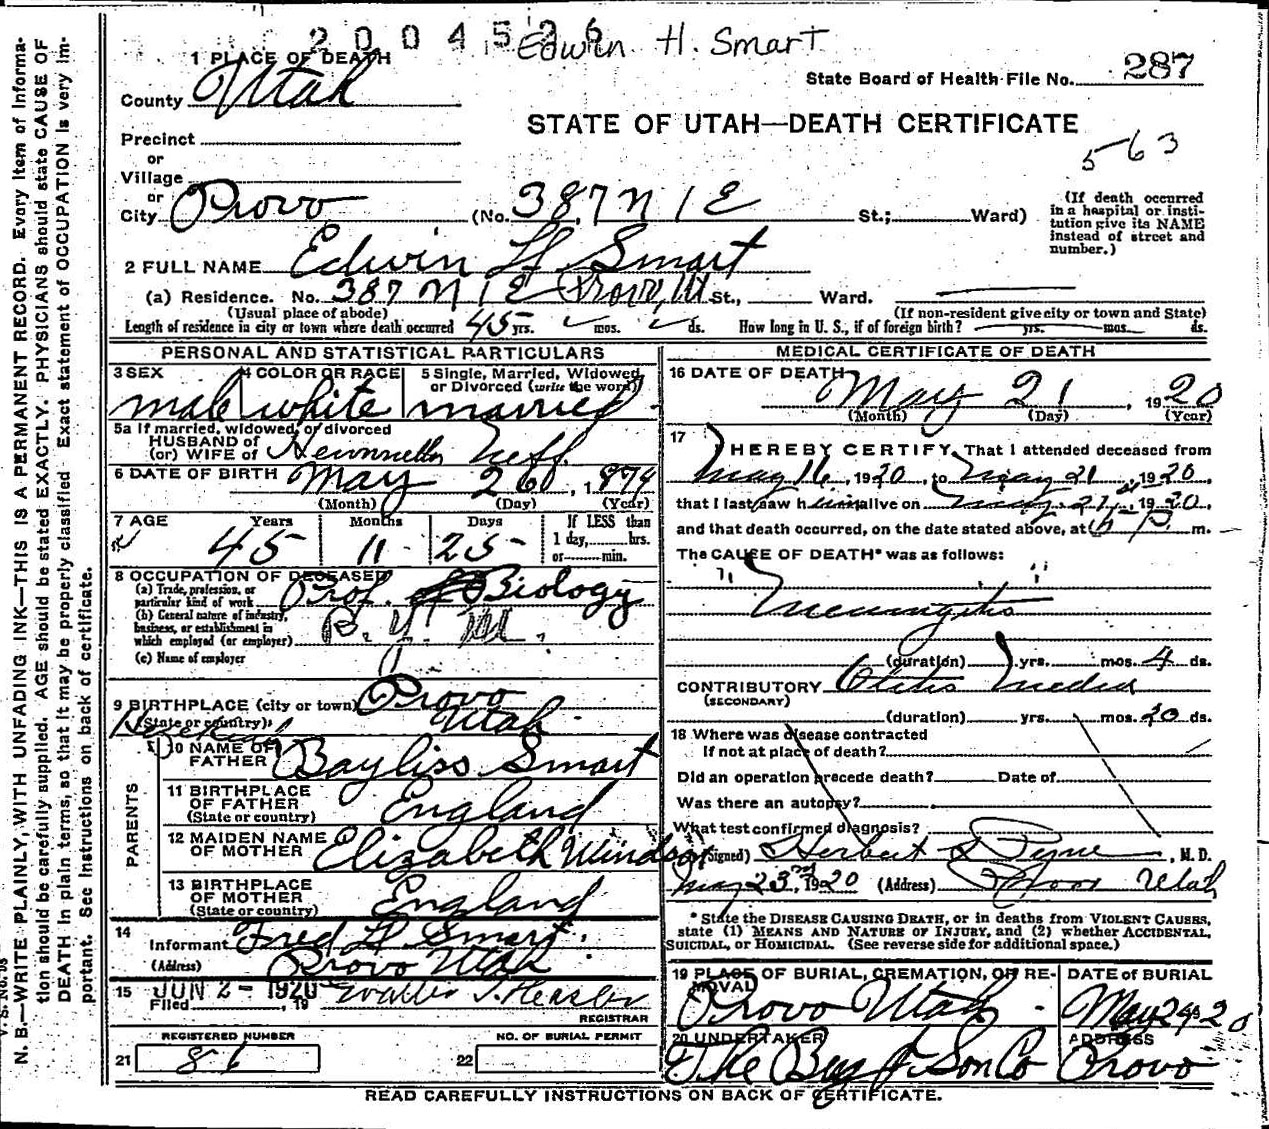 2004526 Edwin H. Smart
1 PLACE OF DEATH
State Board of Health File No. 287
County Utah
STATE OF UTAH—DEATH CERTIFICATE
563
Precinct
or
Village
or
City Provo (No. 387 N 1 E St.; Ward)
(If death occurred in a hospital or institution give its NAME instead of street and number.)
2 FULL NAME Edwin H Smart
(a) Residence. No. 387 N 1 E Provo, Ut St., Ward.
(Usual place of abode) (If non-resident give city or town and State)
Length of residence in city or town where death occurred 45 yrs. mos. ds. How long in U. S., if of foreign birth? yrs. mos. ds.
PERSONAL AND STATISTICAL PARTICULARS
3 SEX 4 COLOR OR RACE 5 Single, Married, Widowed or Divorced (write the word)
male white married
5a If married, widowed, or divorced
HUSBAND of
(or) WIFE of Neff
6 DATE OF BIRTH May 26, 1874
(Month) (Day) (Year)
7 AGE Years Months Days If LESS than
45 11 25 1 day, hrs.
or min.
8 OCCUPATION OF DECEASED
(a) Trade, profession, or particular kind of work Prof. of Biology
(b) General nature of industry, business, or establishment in which employed (or employer) B. Y. U.
(c) Name of employer
9 BIRTHPLACE (city or town) Provo
(State or country) Utah
Hezekiah
PARENTS
10 NAME OF FATHER Bayliss Smart
11 BIRTHPLACE OF FATHER England
(State or country)
12 MAIDEN NAME OF MOTHER Elizabeth Windsor
13 BIRTHPLACE OF MOTHER England
(State or country)
14 Informant Fred H Smart
(Address) Provo Utah
15 Filed JUN 2 - 1920, 19 Walter T. Hasler
REGISTRAR
REGISTERED NUMBER NO. OF BURIAL PERMIT
21 86 22
MEDICAL CERTIFICATE OF DEATH
16 DATE OF DEATH May 21, 1920
(Month) (Day) (Year)
17 I HEREBY CERTIFY, That I attended deceased from
May 16, 1920, to May 21, 1920,
that I last saw him alive on May 21, 1920,
and that death occurred, on the date stated above, at P. m.
The CAUSE OF DEATH* was as follows:
Meningitis
(duration) yrs. mos. 4 ds.
CONTRIBUTORY Otitis Media
(SECONDARY)
(duration) yrs. mos. ds.
18 Where was disease contracted
If not at place of death?
Did an operation precede death? Date of
Was there an autopsy?
What test confirmed diagnosis?
(Signed) Herbert S Pyne, M.D.
May 23rd, 1920 (Address) Provo Utah
* State the DISEASE CAUSING DEATH, or in deaths from VIOLENT CAUSES,
state (1) MEANS AND NATURE OF INJURY, and (2) whether ACCIDENTAL,
SUICIDAL, or HOMICIDAL. (See reverse side for additional space.)
19 PLACE OF BURIAL, CREMATION, OR REMOVAL DATE of BURIAL
Provo Utah May 24, 20
20 UNDERTAKER ADDRESS
The Berg & Son Co Provo
READ CAREFULLY INSTRUCTIONS ON BACK OF CERTIFICATE.
V. S. No.
N. B.—WRITE PLAINLY, WITH UNFADING INK—THIS IS A PERMANENT RECORD. Every item of Informa-
tion should be carefully supplied. AGE should be stated EXACTLY. PHYSICIANS should state CAUSE OF
DEATH in plain terms, so that it may be properly classified. Exact statement of OCCUPATION is very im-
portant. See instructions on back of certificate.